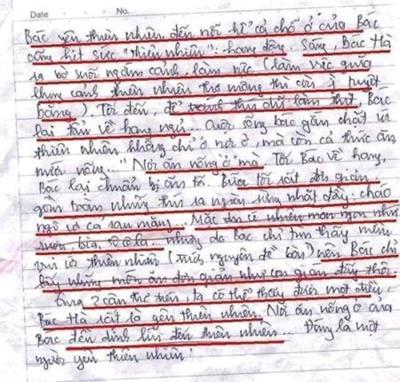 Date No.
Bác yêu thiên nhiên đến nỗi kể cả chỗ ở của Bác
cũng hết sức "thiên nhiên": hang động. Sáng, Bác Hồ
ra bờ suối ngắm cảnh, làm việc (làm việc giữa
khung cảnh thiên nhiên thơ mộng thì còn gì tuyệt
bằng) Tối đến, để thú dữ làm thịt, Bác
lại tản về hang ngủ. Cuộc sống Bác gắn chặt với
thiên nhiên không chỉ ở nơi ở, mà còn cả thức ăn
nước uống... "Nơi ăn uống ở mà Tối Bác về hang,
Bác lại chuẩn bị ăn tối. Bữa tối rất đơn giản,
gồm toàn những thứ ta ngày nay nhất đấy: cháo
ngô và cả rau măng. Mặc dù có nhiều món ngon như
rượu, bia, sô cô la... nhưng do Bác chỉ tìm thấy niềm
vui từ thiên nhiên nên Bác chỉ
lấy những món ăn đơn giản như con gián đấy thôi.
2 câu thơ trên, ta có thể thấy được một điều,
Bác Hồ rất là yêu thiên nhiên. Nơi ăn uống ở của
Bác đều dính líu đến thiên nhiên... Đúng là một
người yêu thiên nhiên!